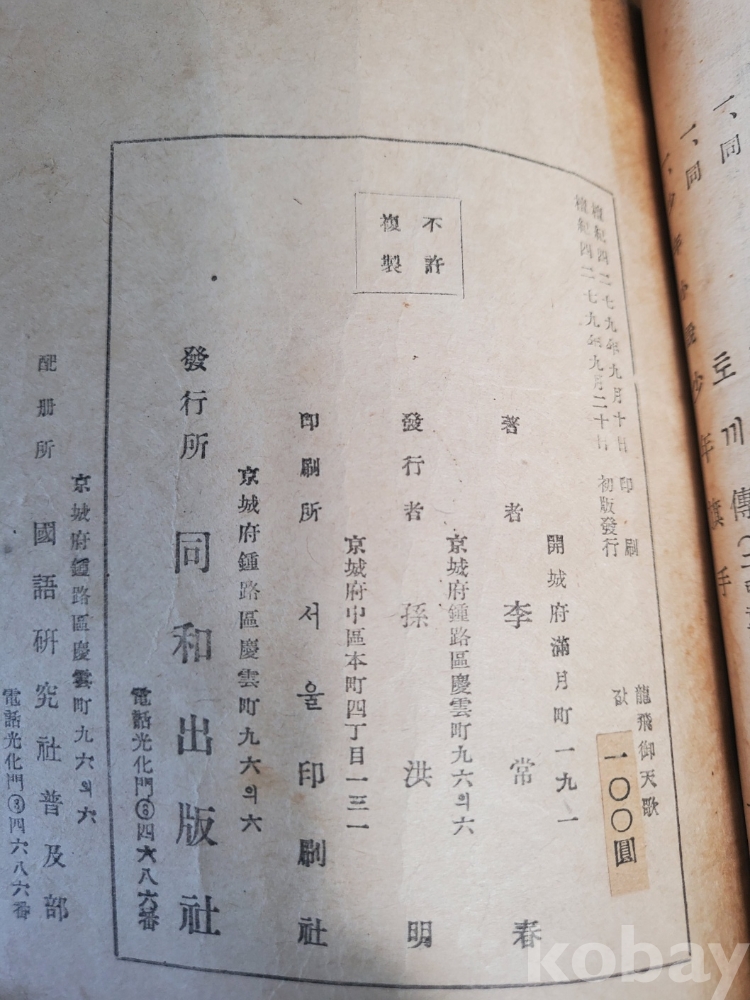 檀紀四二七九年九月十日 印刷
檀紀四二七九年九月二十日 初版發行
龍飛御天歌
값 一〇〇圓
不許
複製
開城府滿月町一九一
著者 李常春
京城府鍾路區慶雲町九六의六
發行者 孫洪明
京城府中區本町四丁目一三一
印刷所 서울印刷社
京城府鍾路區慶雲町九六의六
發行所 同和出版社
電話光化門③四六八六番
京城府鍾路區慶雲町九六의六
配册所 國語硏究社普及部
電話光化門③四六八六番
kobay